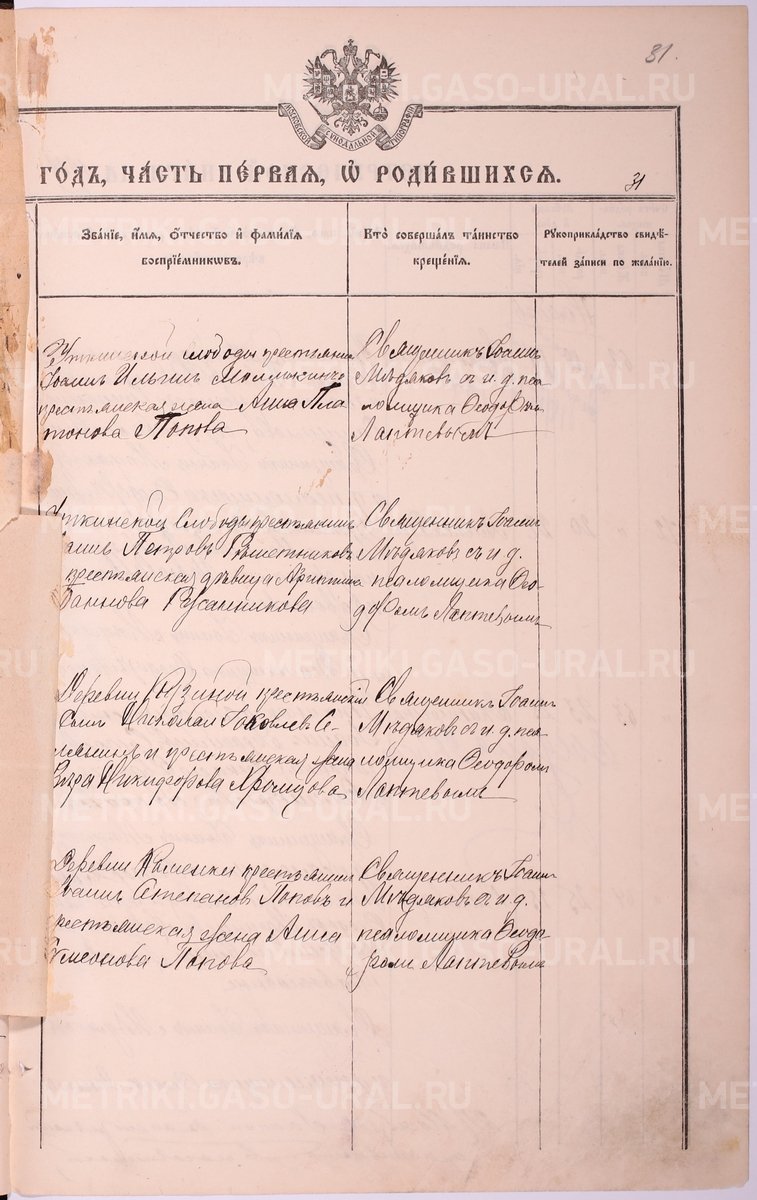 31.
МОСКОВСКОЙ СѴНОДАЛЬНОЙ ТИПОГРАФІИ
ГОДЪ, ЧАСТЬ ПЕРВАЯ, Ѿ РОДИВШИХСЯ.
31
Званіе, имя, отчество и фамилія воспріемниковъ.
Кто совершалъ таинство крещенія.
Рукоприкладство свидѣтелей записи по желанію.
Уткинской Слободы крестьянинъ
Іоаннъ Ильинъ
крестьянская жена Анна Пла
тонова Попова
Священникъ Іоаннъ
Мѣдяковъ съ и. д. пса
ломщика Ѳеодоромъ
Лаптевымъ
Уткинской Слободы крестьянинъ
Петровъ Рѣшетниковъ
крестьянская дѣвица
Русанникова
Священникъ Іоаннъ
Мѣдяковъ съ и. д.
псаломщика Ѳео
доромъ Лаптевымъ
Деревни крестьянскій
сынъ Николай Іаковлевъ Се-
и крестьянская жена
Вѣра Никифорова Хромцова
Священникъ Іоаннъ
Мѣдяковъ съ и. д. пса
ломщика Ѳеодоромъ
Лаптевымъ
Деревни Каменки крестьянинъ
Іоаннъ Степановъ Поповъ и
крестьянская жена Анна
Сумеонова Попова
Священникъ Іоаннъ
Мѣдяковъ съ и. д.
псаломщика Ѳеодо
ромъ Лаптевымъ
METRIKI.GASO-URAL.RU